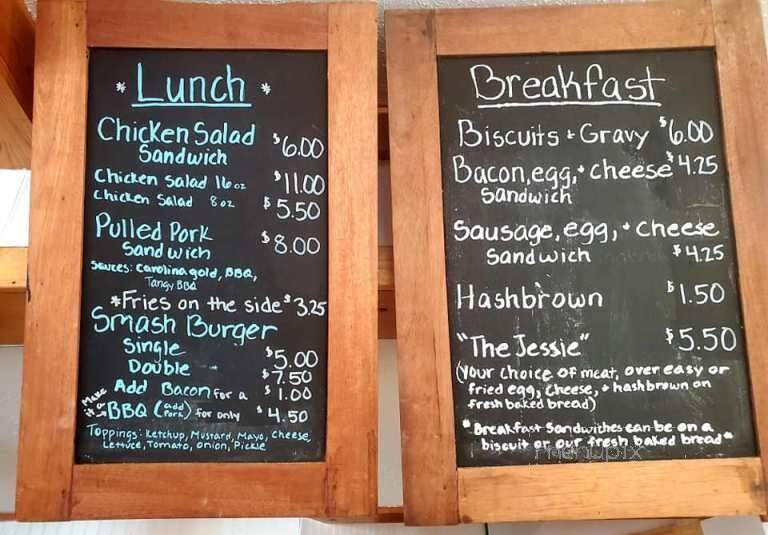 * Lunch *
Chicken Salad
Sandwich $6.00
Chicken Salad 16oz $11.00
Chicken Salad 8oz $5.50
Pulled Pork
Sandwich $8.00
Sauces: Carolina gold, BBQ,
Tangy BBQ
*Fries on the side $3.25
Smash Burger
Single $5.00
Double $7.50
Add Bacon for a $1.00
Make it a BBQ (add Pork) for only $4.50
Toppings: Ketchup, Mustard, Mayo, Cheese,
Lettuce, Tomato, Onion, Pickle
Breakfast
Biscuits + Gravy $6.00
Bacon, egg, + cheese $4.25
Sandwich
Sausage, egg, + Cheese
Sandwich $4.25
Hashbrown $1.50
"The Jessie" $5.50
(your choice of meat, over easy or
fried egg, cheese, + hashbrown on
fresh baked bread)
*Breakfast Sandwiches can be on a
biscuit or our fresh baked bread*
menupix